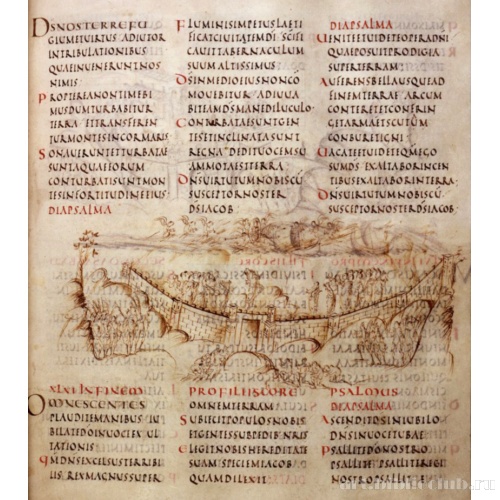 DSNOSTERREFU
GIUMETUIRTUS ADIUTOR
INTRIBULATIONIBUS
QUAEINUENERUNTNOS
NIMIS
PROPTEREANONTIMEBI
MUSDUMTURBABITUR
TERRA ETTRANSFEREN
TURMONTESINCORMARIS
SONAUERUNTETTURBATAE
SUNTAQUAEEORUM
CONTURBATISUNTMON
TESINFORTITUDINEEIUS
DIAPSALMA
FLUMINISIMPETUSLAETI
FICATCIUITATEMDI SCIFI
CAUITTABERNACULUM
SUUMALTISSIMUS
DSINMEDIOEIUSNONCO
MOUEBITUR ADIUUA
BITEAMDSMANEDILUCULO
CONTURBATAESUNTGEN
TESETINCLINATASUNT
REGNA DEDITUOCEMSU
AMMOTAESTTERRA
DNSUIRTUTUMNOBISCU
SUSCEPTORNOSTER
DSIACOB
DIAPSALMA
UENITEETUIDETEOPERADNI
QUAEPOSUITPRODIGIA
SUPERTERRAM
AUFERENSBELLAUSQUEAD
FINEMTERRAE ARCUM
CONTERETETCONFRIN
GETARMAETSCUTA
CONBURETIGNI
UACATEETUIDETEQMEGO
SUMDS EXALTABORINGEN
TIBUSEXALTABORINTERRA
DNSUIRTUTUMNOBISCU
SUSCEPTORNOSTERDSIACOB
XLVI INFINEM
OMNESGENTES
PLAUDITEMANIBUS IU
BILATEDOINUOCE EXUL
TATIONIS
QMDNSEXCELSUSTERRIBI
LIS REXMAGNUSSUPER
PROFILIISCORE
OMNEMTERRAM
SUBIECITPOPULOSNOBIS
ETGENTESSUBPEDIBNRIS
ELEGITNOBISHEREDITATE
SUAMSPECIEMIACOB
QUAMDILEXIT
PSALMUS
DIAPSALMA
ASCENDITDSINIUBILO
DNSINUOCETUBAE
PSALLITEDONOSTROPSALLITE
PSALLITEREGI
NOSTROPSALLITE